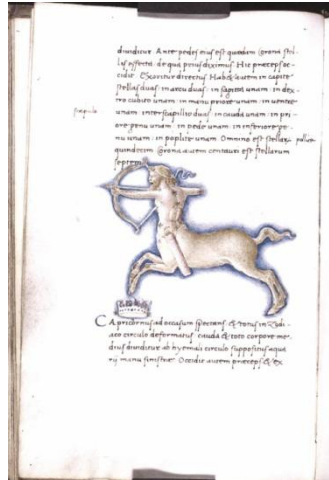 diuiditur. Ante pedes eius est quædam corona stel
lis effecta de qua prius diximus Hic præceps oc
cidit Exoritur directus Habet autem in capite
stellas duas in arcu duas in sagitta unam in dex
tro cubito unam in manu priore unam in uentre
unam interscapilio duas in cauda unam in pri
ore genu unam in pede unam in inferiore ge
nu unam in poplite unam Omnino est stellarum
quindecim Corona autem centauri est stellarum
septem
Capricornus ad occasum spectans & totus in Zodi
aco circulo deformatus cauda & toto corpore me
dius diuiditur ab hyemali circulo suppositus aqua
rii manu sinistræ Occidit autem præceps & ex